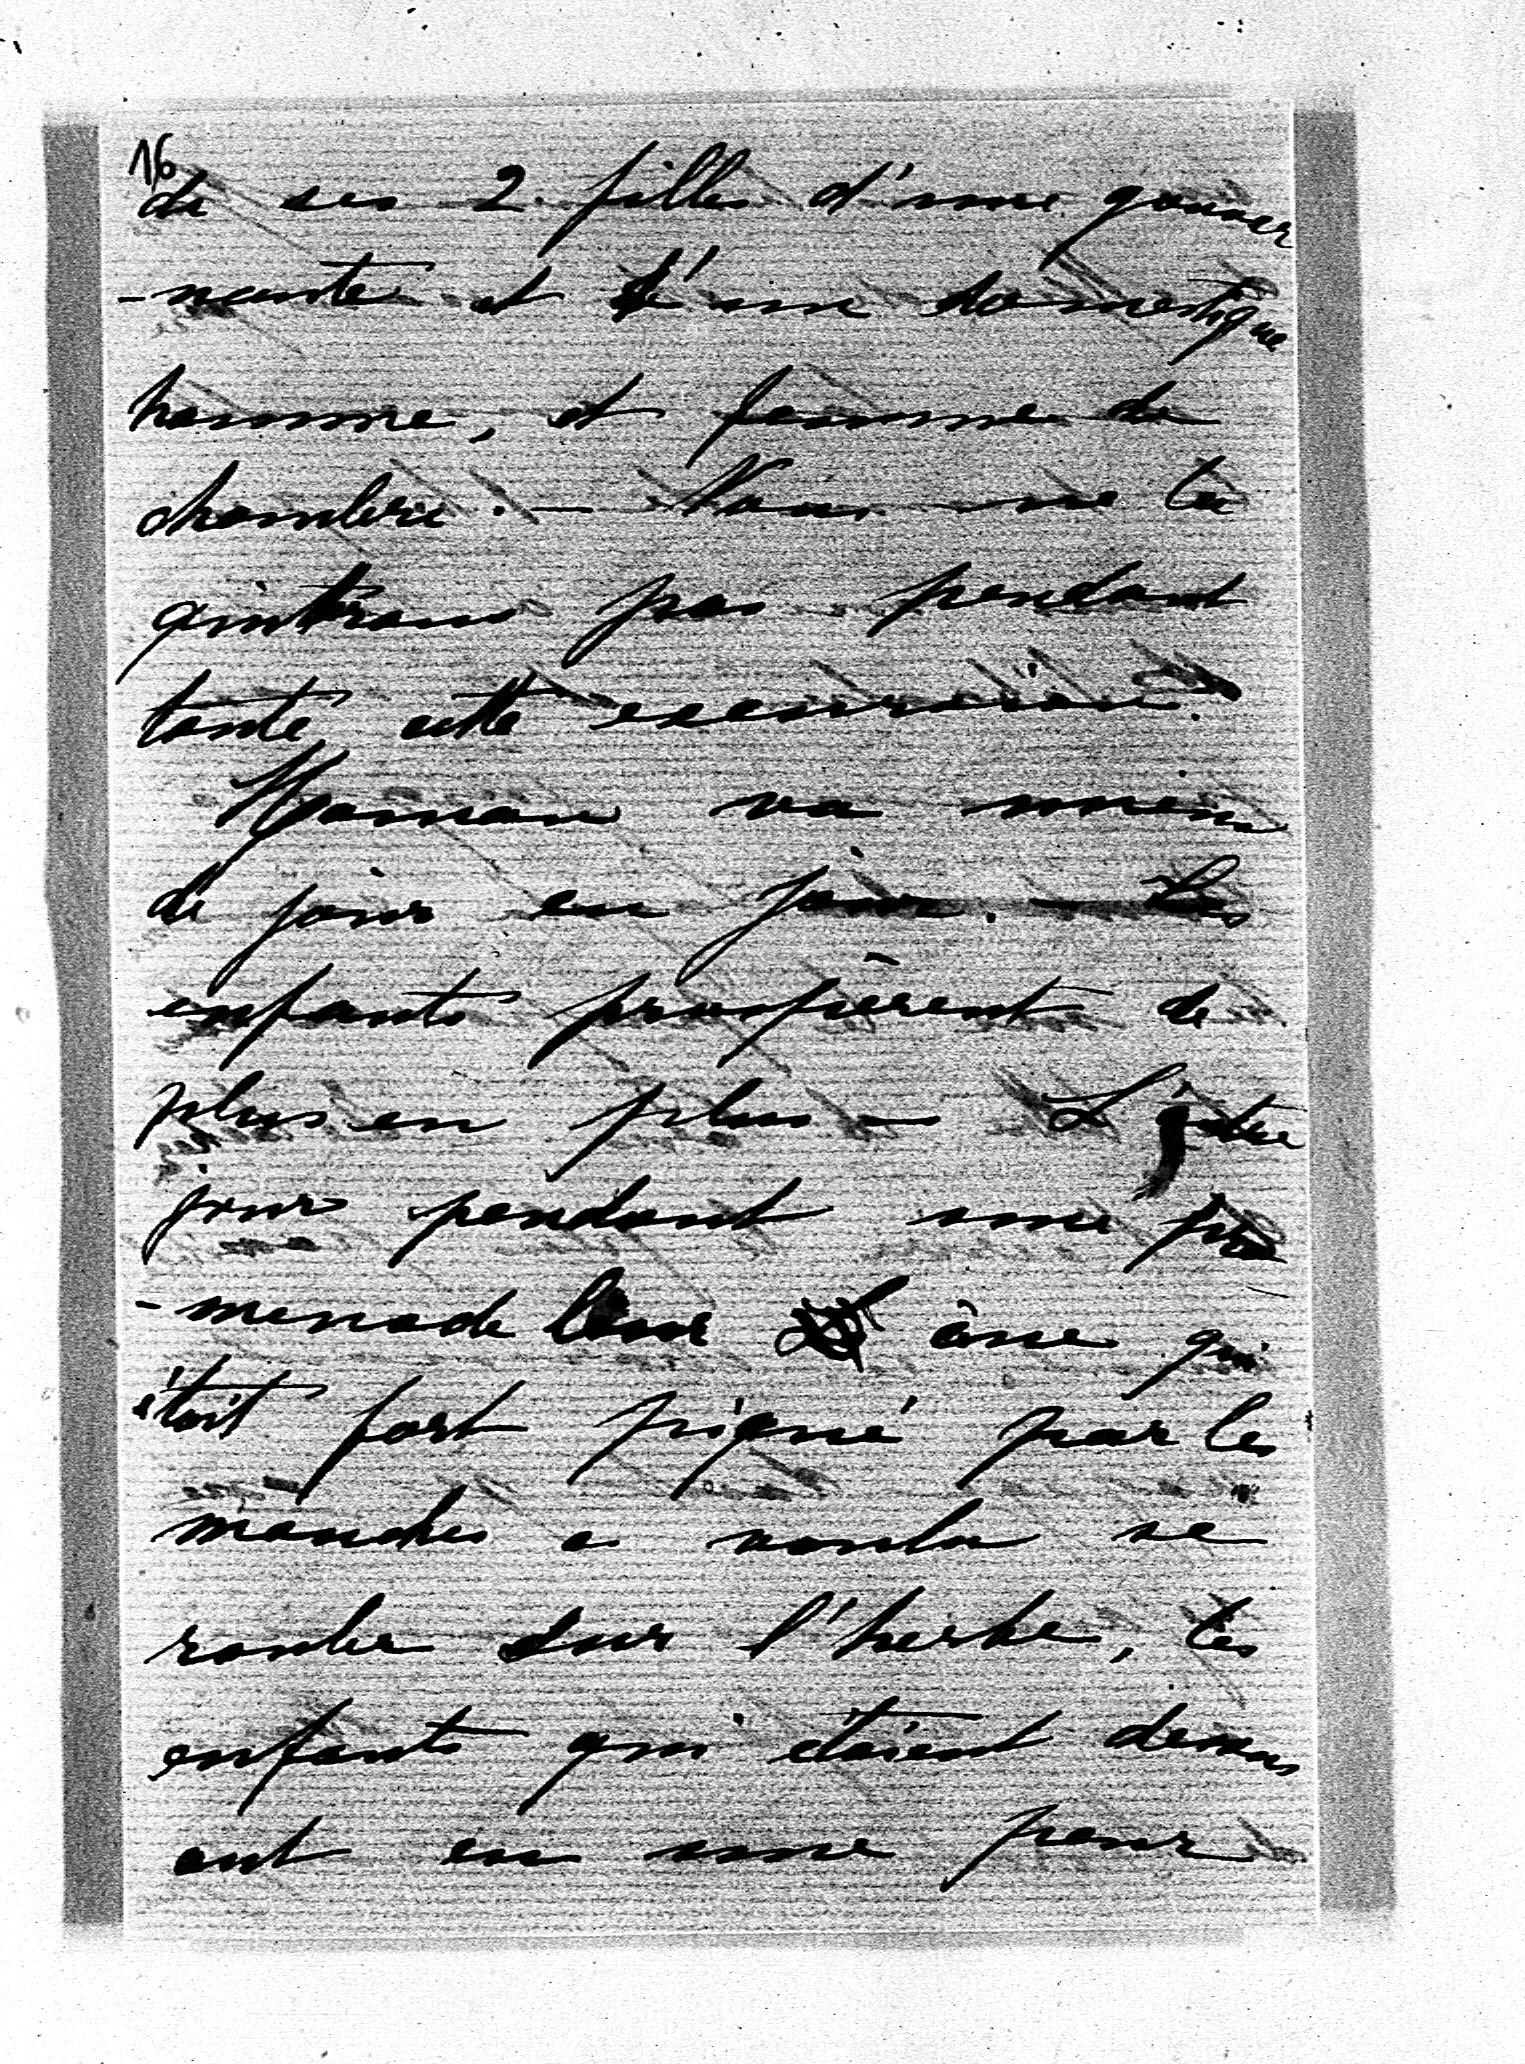 16
de ses 2 filles d'une gouver
-nante et d'un domestique
homme, et femme de
chambre. — Nous ne les
quitterons pas pendant
toute cette excursion.
Maman va mieux
de jour en jour. — Les
enfants profièrent de
plus en plus — L'autre
jour pendant une pro
-menade leur âne qui
était fort piqué par les
mouches a voulu se
rouler sur l'herbe, les
enfants qui étaient dessus
ont eu une peur